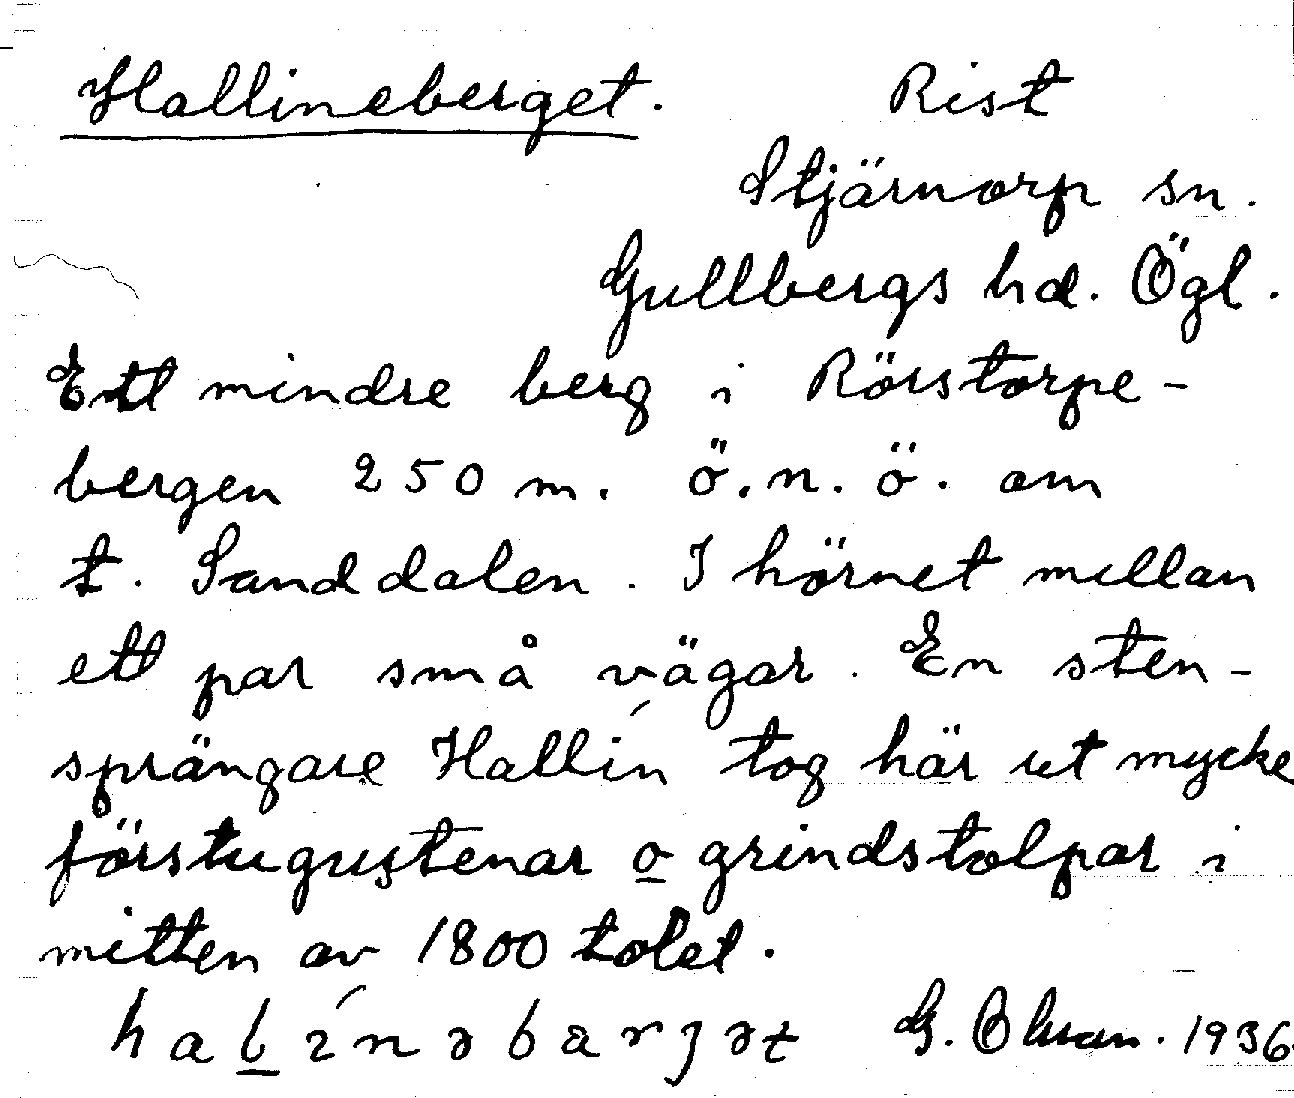 Hallineberget. Rist
Stjärnorp sn.
Gullbergs hd. Ögl.
Ett mindre berg i Rörstorpe-
bergen 250 m. ö.n.ö. om
t. Sanddalen. I hörnet mellan
ett par små vägar. En sten-
sprängare Hallín tog här ut mycke
förstugustenar o grindstolpar i
mitten av 1800 talet.
G. Olsson. 1936.